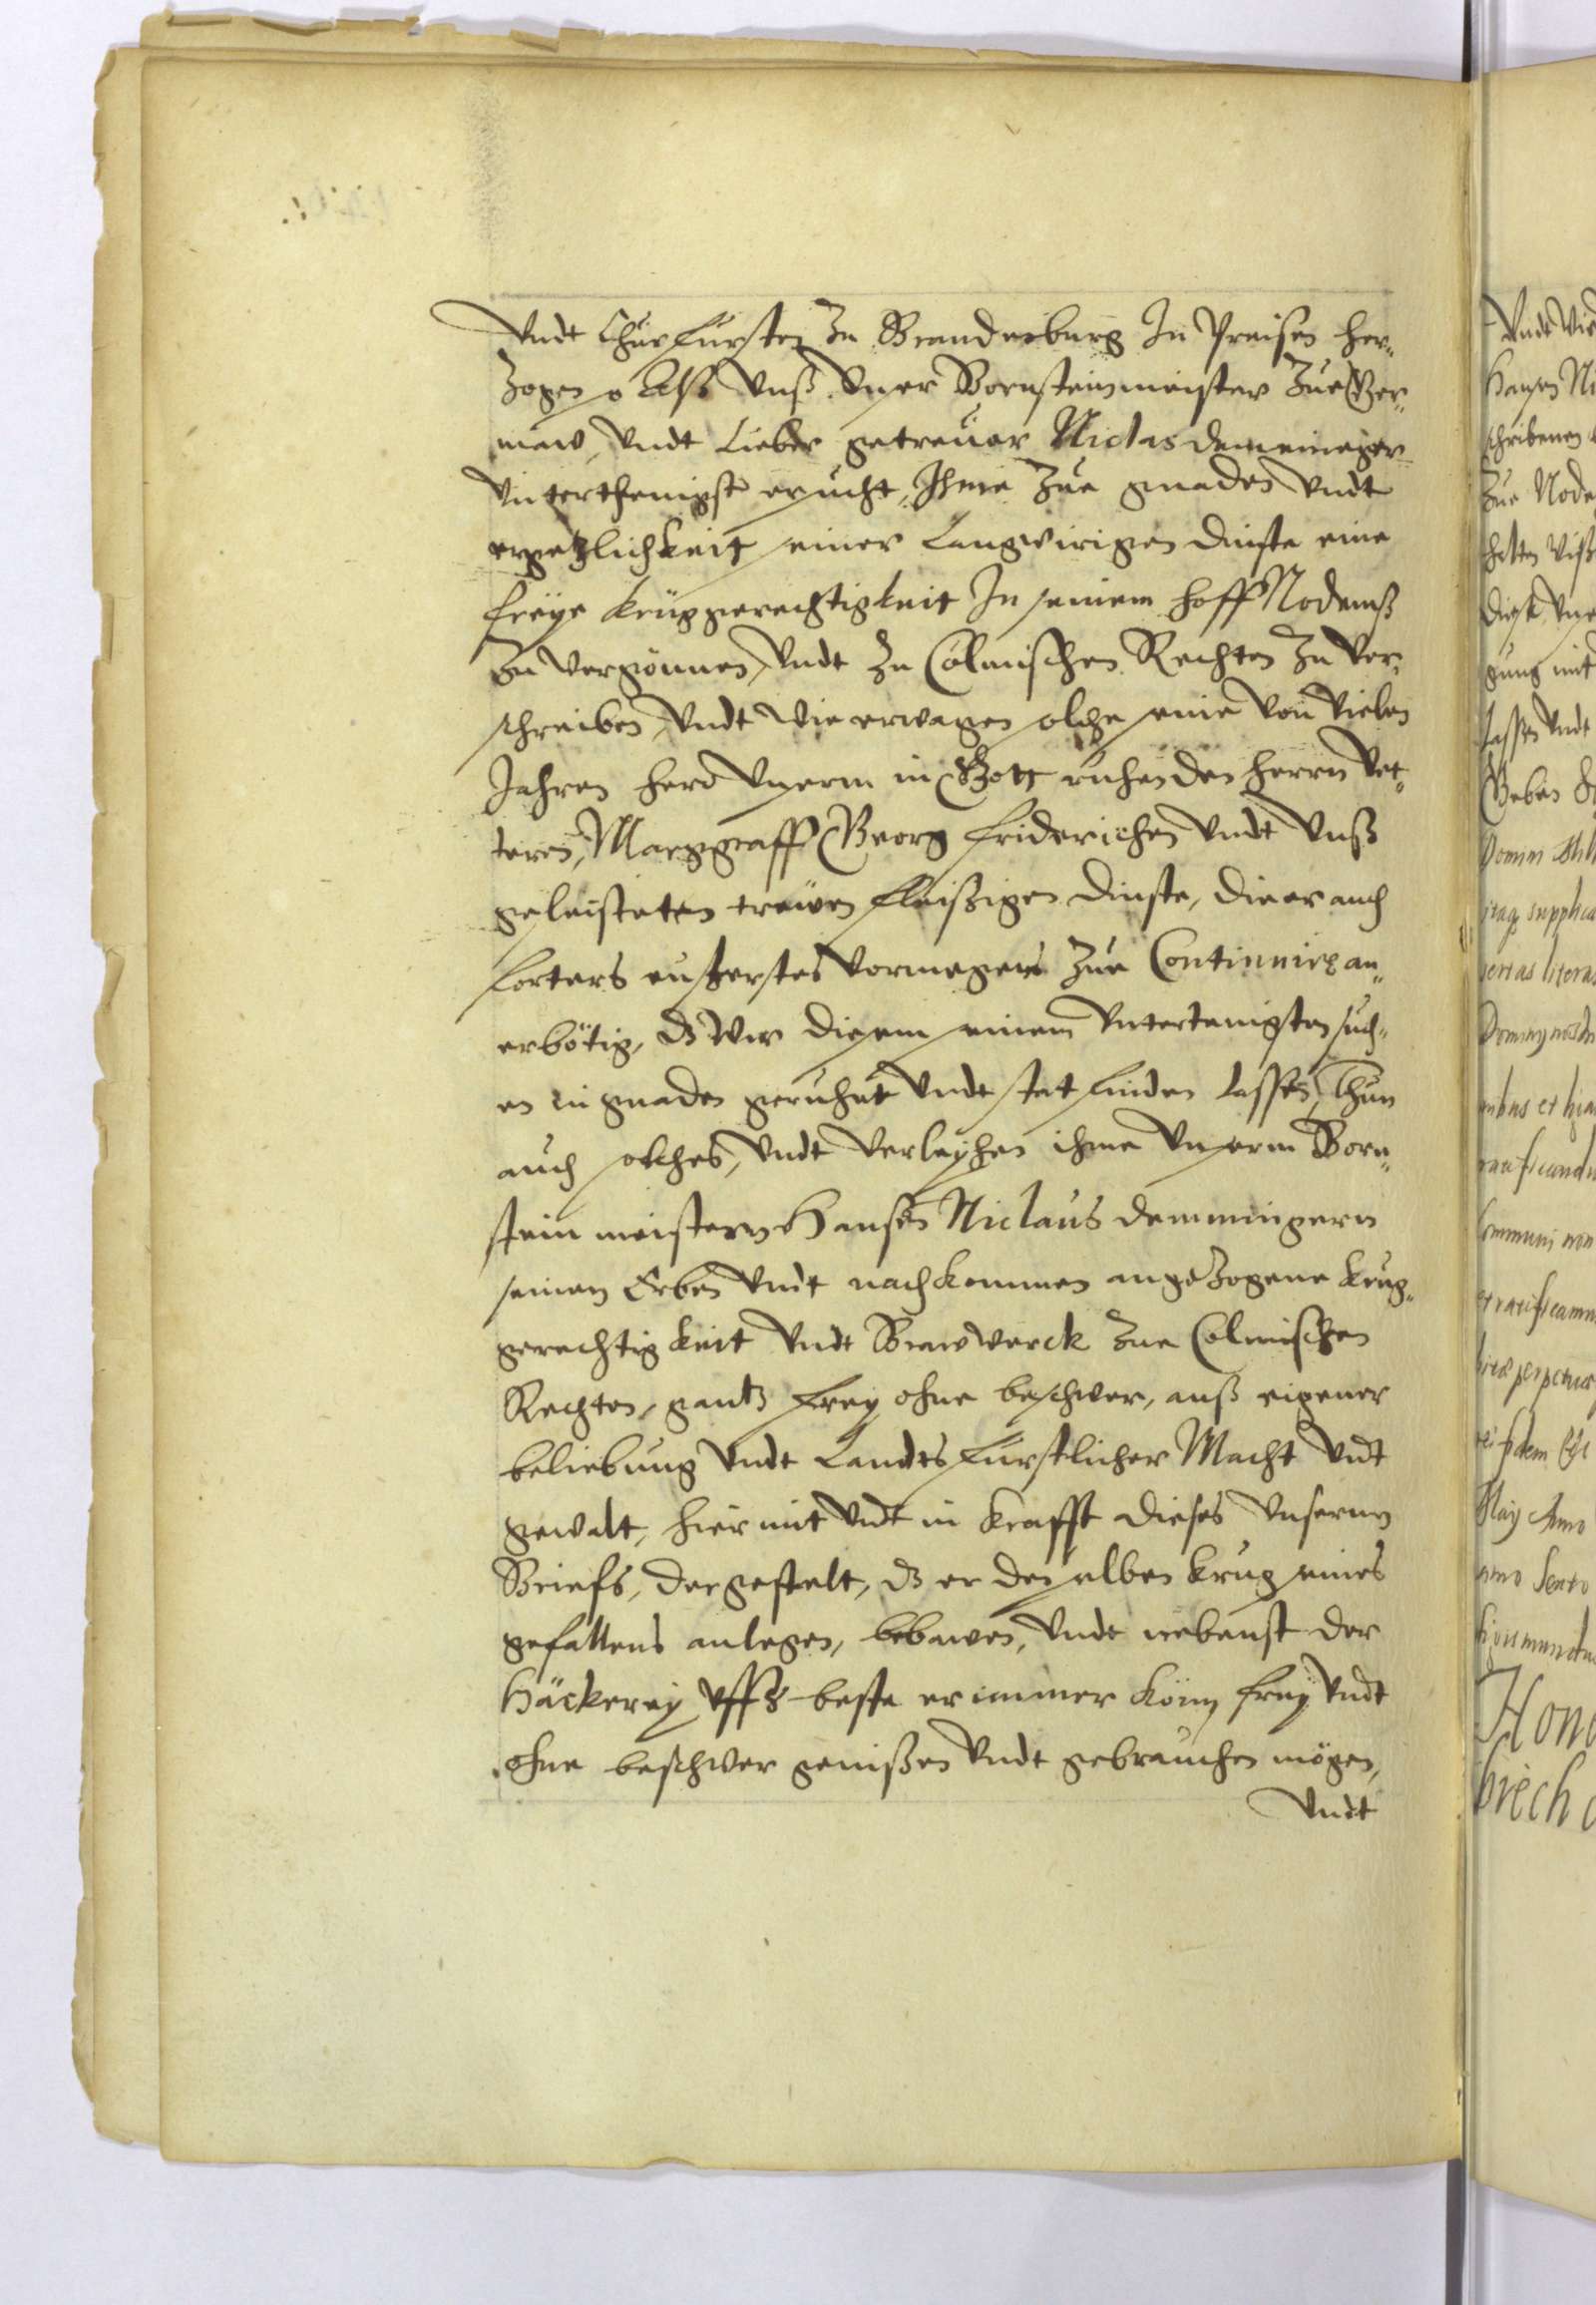 Vndt Churfürsten Zu Brandenburg In Preisen her¬
Zogen so Alß Vnß Vnser Bornsteinmeister Zue Ger¬
maw, Vndt Lieber getreuer Niclas demeineger
Vnterthenigst ersucht, Ihme Zue gnaden Vndt
ergetzlichkeit seiner Langwirigen dinste eine
freÿe Krüggerechtigkeit In seinem hoff Nodemß
Zu Vergönnen, Vndt Zu Cölmischen Rechten Zu Ver¬
schreiben, Vndt Wie erwagen solche seine Von Vielen
Jahren hero Vnserm in Gott ruhenden herrn Vet¬
tern, Marggraff Georg friderichen Vndt Vnß
geleisteten treüen fleißigen dinste, die er auch
forters eußerstes Vermegens Zue Continuiren an¬
erbötig, Dz Wir diesem seinem Vntertenigsten such¬
en in gnaden geruhet Vndt stat finden lassen, Thun
auch solches, Vndt Verleyhen ihme Vnserm Born¬
stein meistern Hansen Niclaus demmingern
seinen Erben Vndt nachkommen angezogene Krug¬
gerechtigkeit Vndt Brawwerck Zue Colmischen
Rechten, gantz frey ohne beschwer, auß eigener
beliebung Vndt Landtsfürstlicher Macht Vndt
gewalt, hiermit Vndt in Krafft dieses Vnsernn
Briefs, dergestalt, Dz er denselben Krug seines
gefallens anlegen, bebawen, Vndt nebenst der
Häckereÿ Vffs beste er immer könn freÿ Vndt
ohne beschwer genißen Vndt gebrauchen mögen,
Vndt